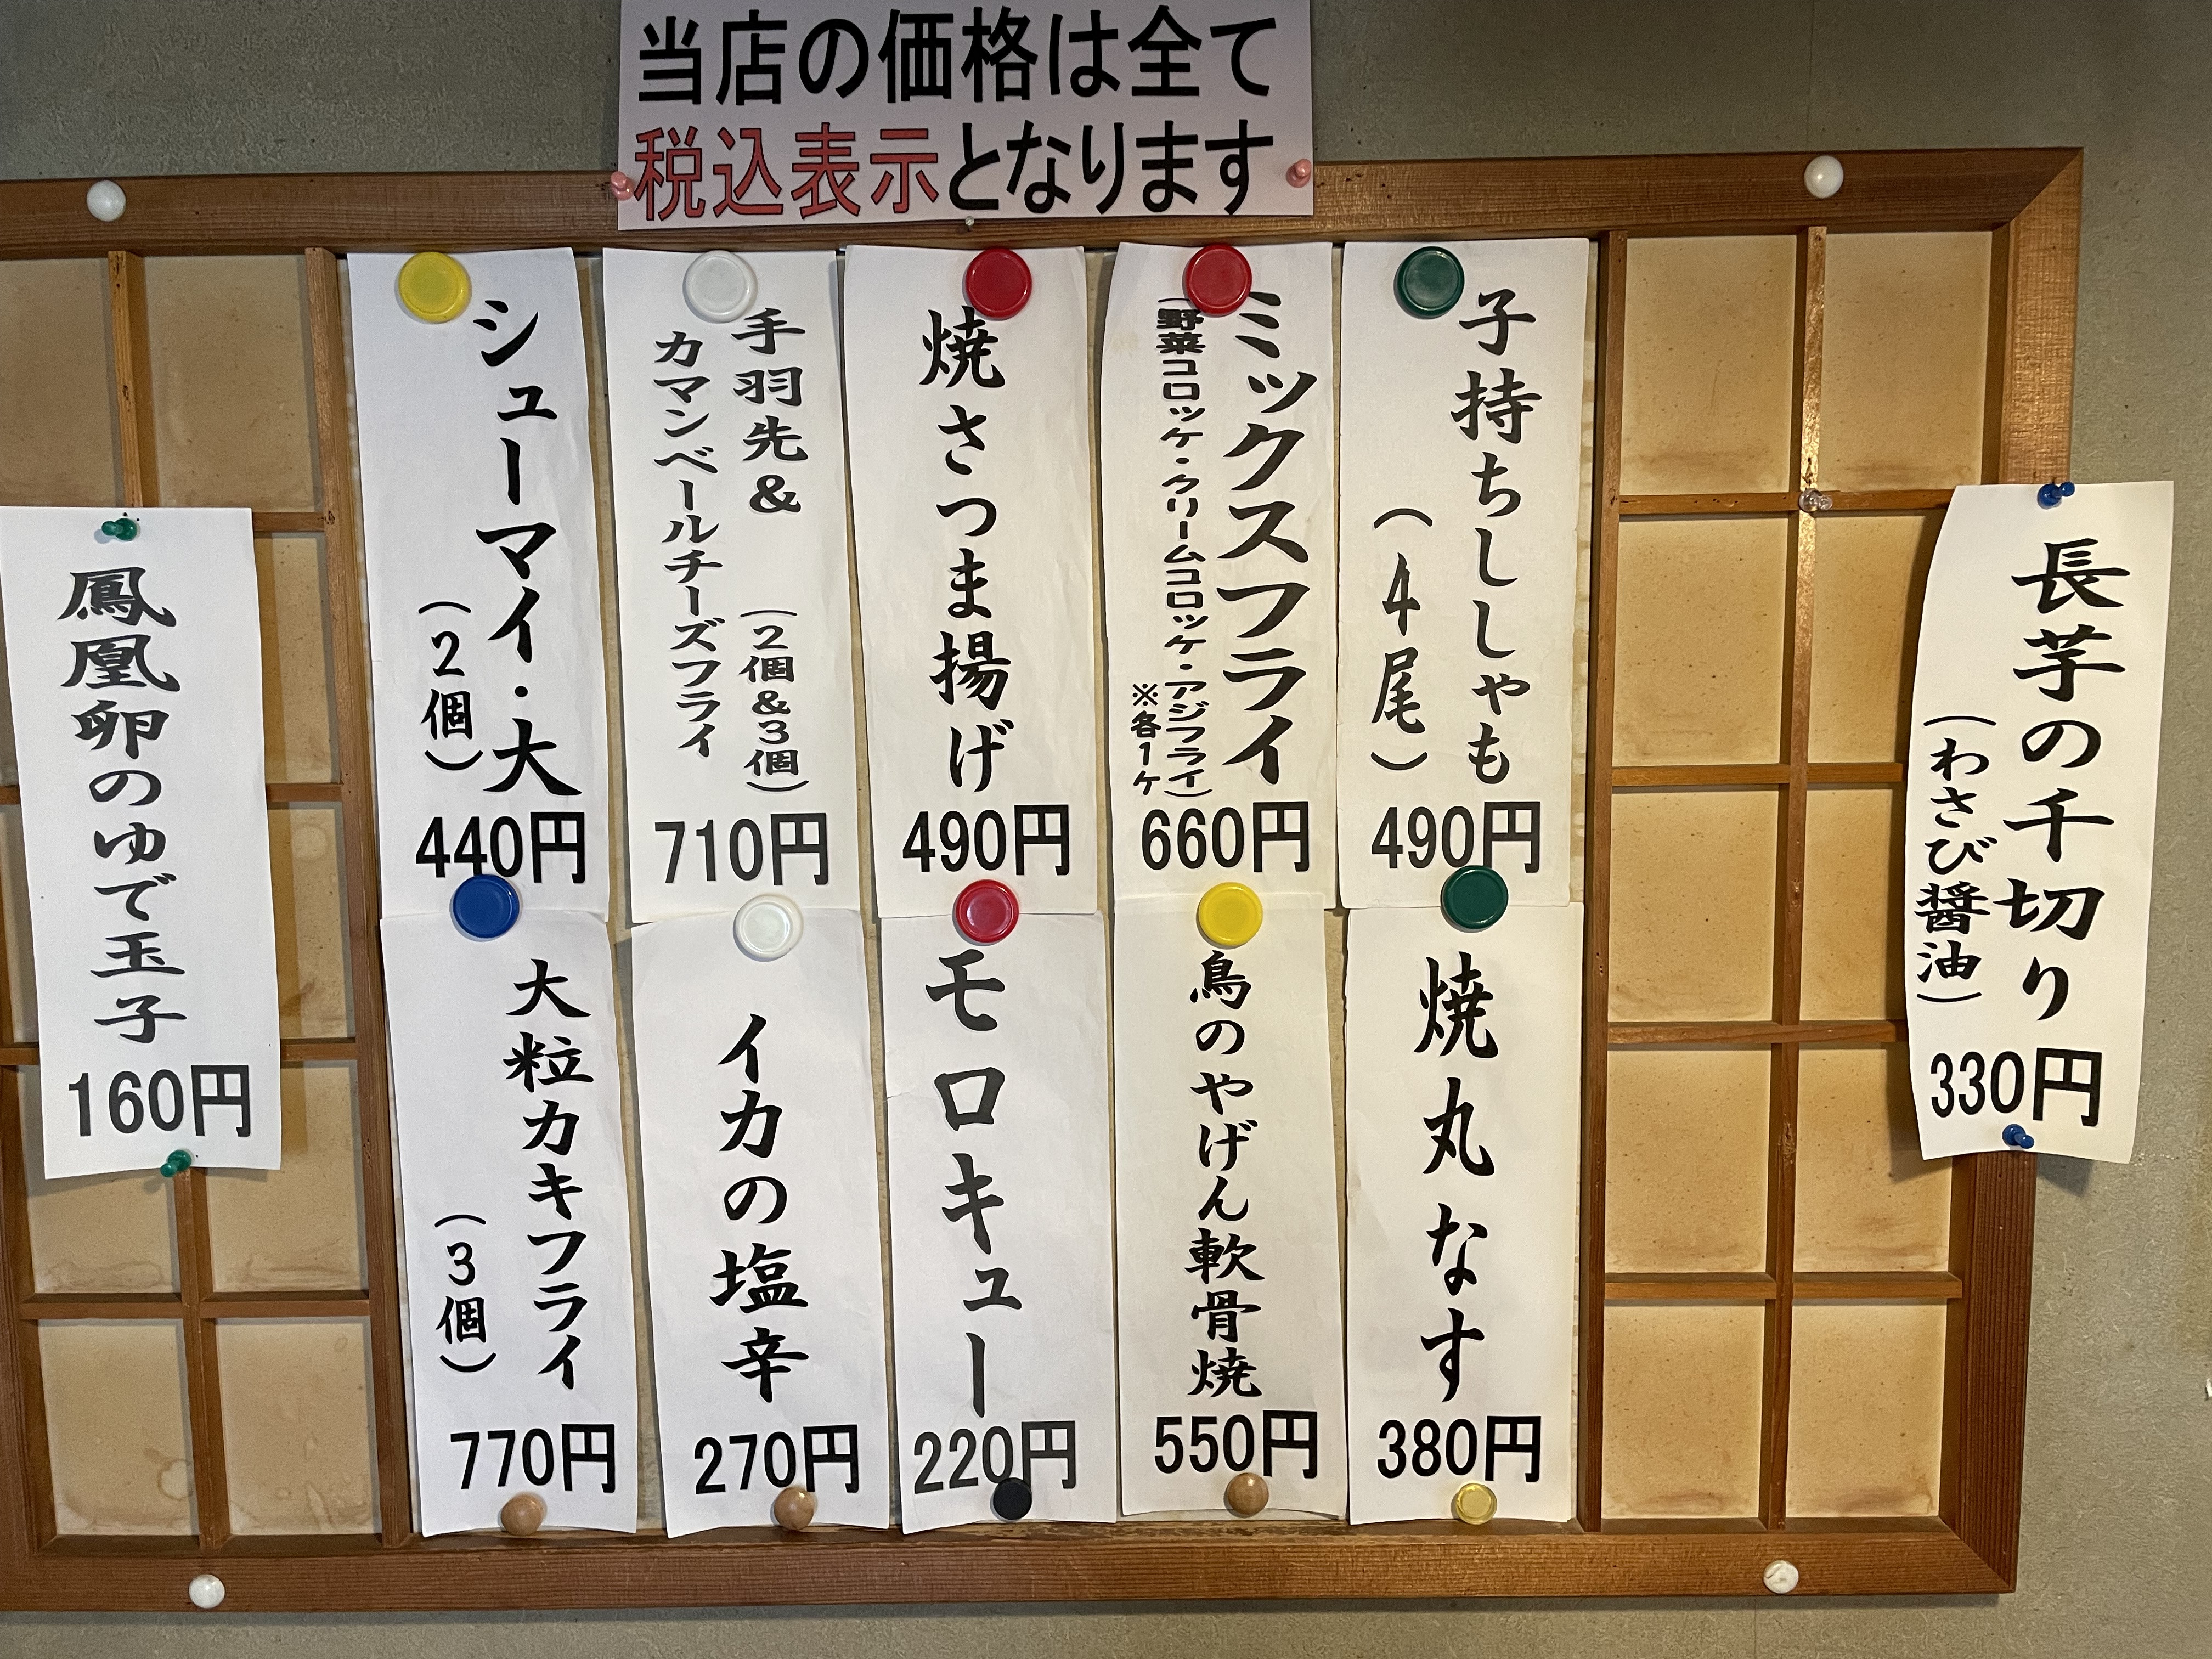 当店の価格は全て
税込表示となります
長芋の千切り
(わさび醤油)
330円
子持ちししゃも
(4尾)
490円
ミックスフライ
(野菜コロッケ・クリームコロッケ・アジフライ)
※各1ケ
660円
焼さつま揚げ
490円
手羽先&
(2個&3個)
カマンベールチーズフライ
710円
シューマイ・大
(2個)
440円
焼丸なす
380円
鳥のやげん軟骨焼
550円
モロキュー
220円
イカの塩辛
270円
大粒カキフライ
(3個)
770円
鳳凰卵のゆで玉子
160円